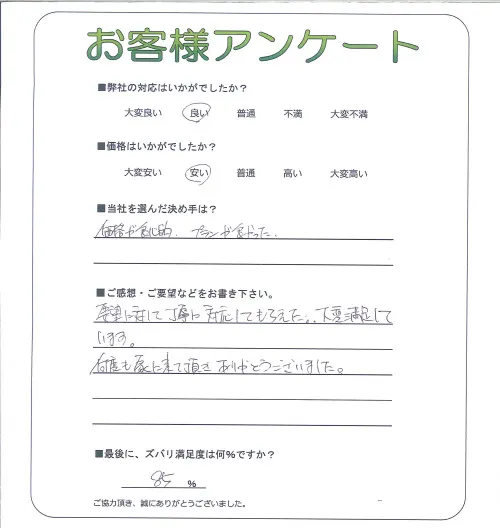 お客様アンケート
■弊社の対応はいかがでしたか？
大変良い 良い 普通 不満 大変不満
■価格はいかがでしたか？
大変安い 安い 普通 高い 大変高い
■当社を選んだ決め手は？
価格が 的、プランが良かった。
■ご感想・ご要望などをお書き下さい。
要望に対して丁寧に対応してもらえた。大変満足して
います。
何度も家に来て頂きありがとうございました。
■最後に、ズバリ満足度は何%ですか？
85 %
ご協力頂き、誠にありがとうございました。